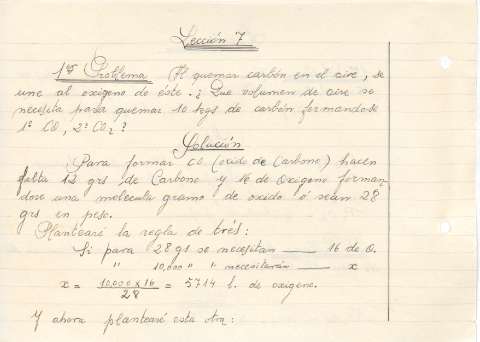 Lección 7
1er Problema Al quemar carbón en el aire, se
une al oxígeno de éste. ¿Que volumen de aire se
necesita para quemar 10 kgs de carbón formandose
1º CO, 2º CO₂?
Solución
Para formar CO (oxido de Carbono) hacen
falta 12 grs de Carbono y 16 de Oxígeno forman-
dose una molecula gramo de oxido ó sean 28
grs en peso.
Plantearé la regla de trés:
Si para 28 gs se necesitan —— 16 de O.
" 10,000 " " necesitarán —— x
x = 10,000 x 16 / 28 = 5714 l. de oxigeno.
Y ahora plantearé esta otra: